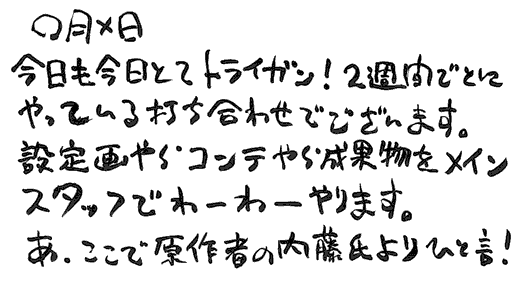 〇月×日
今日も今日とてトライガン！2週間でとに
やっている打ち合わせでございます。
設定画やらコンテやら成果物をメイン
スタッフでわーわーやります。
あ、ここで原作者の内藤氏よりひと言！